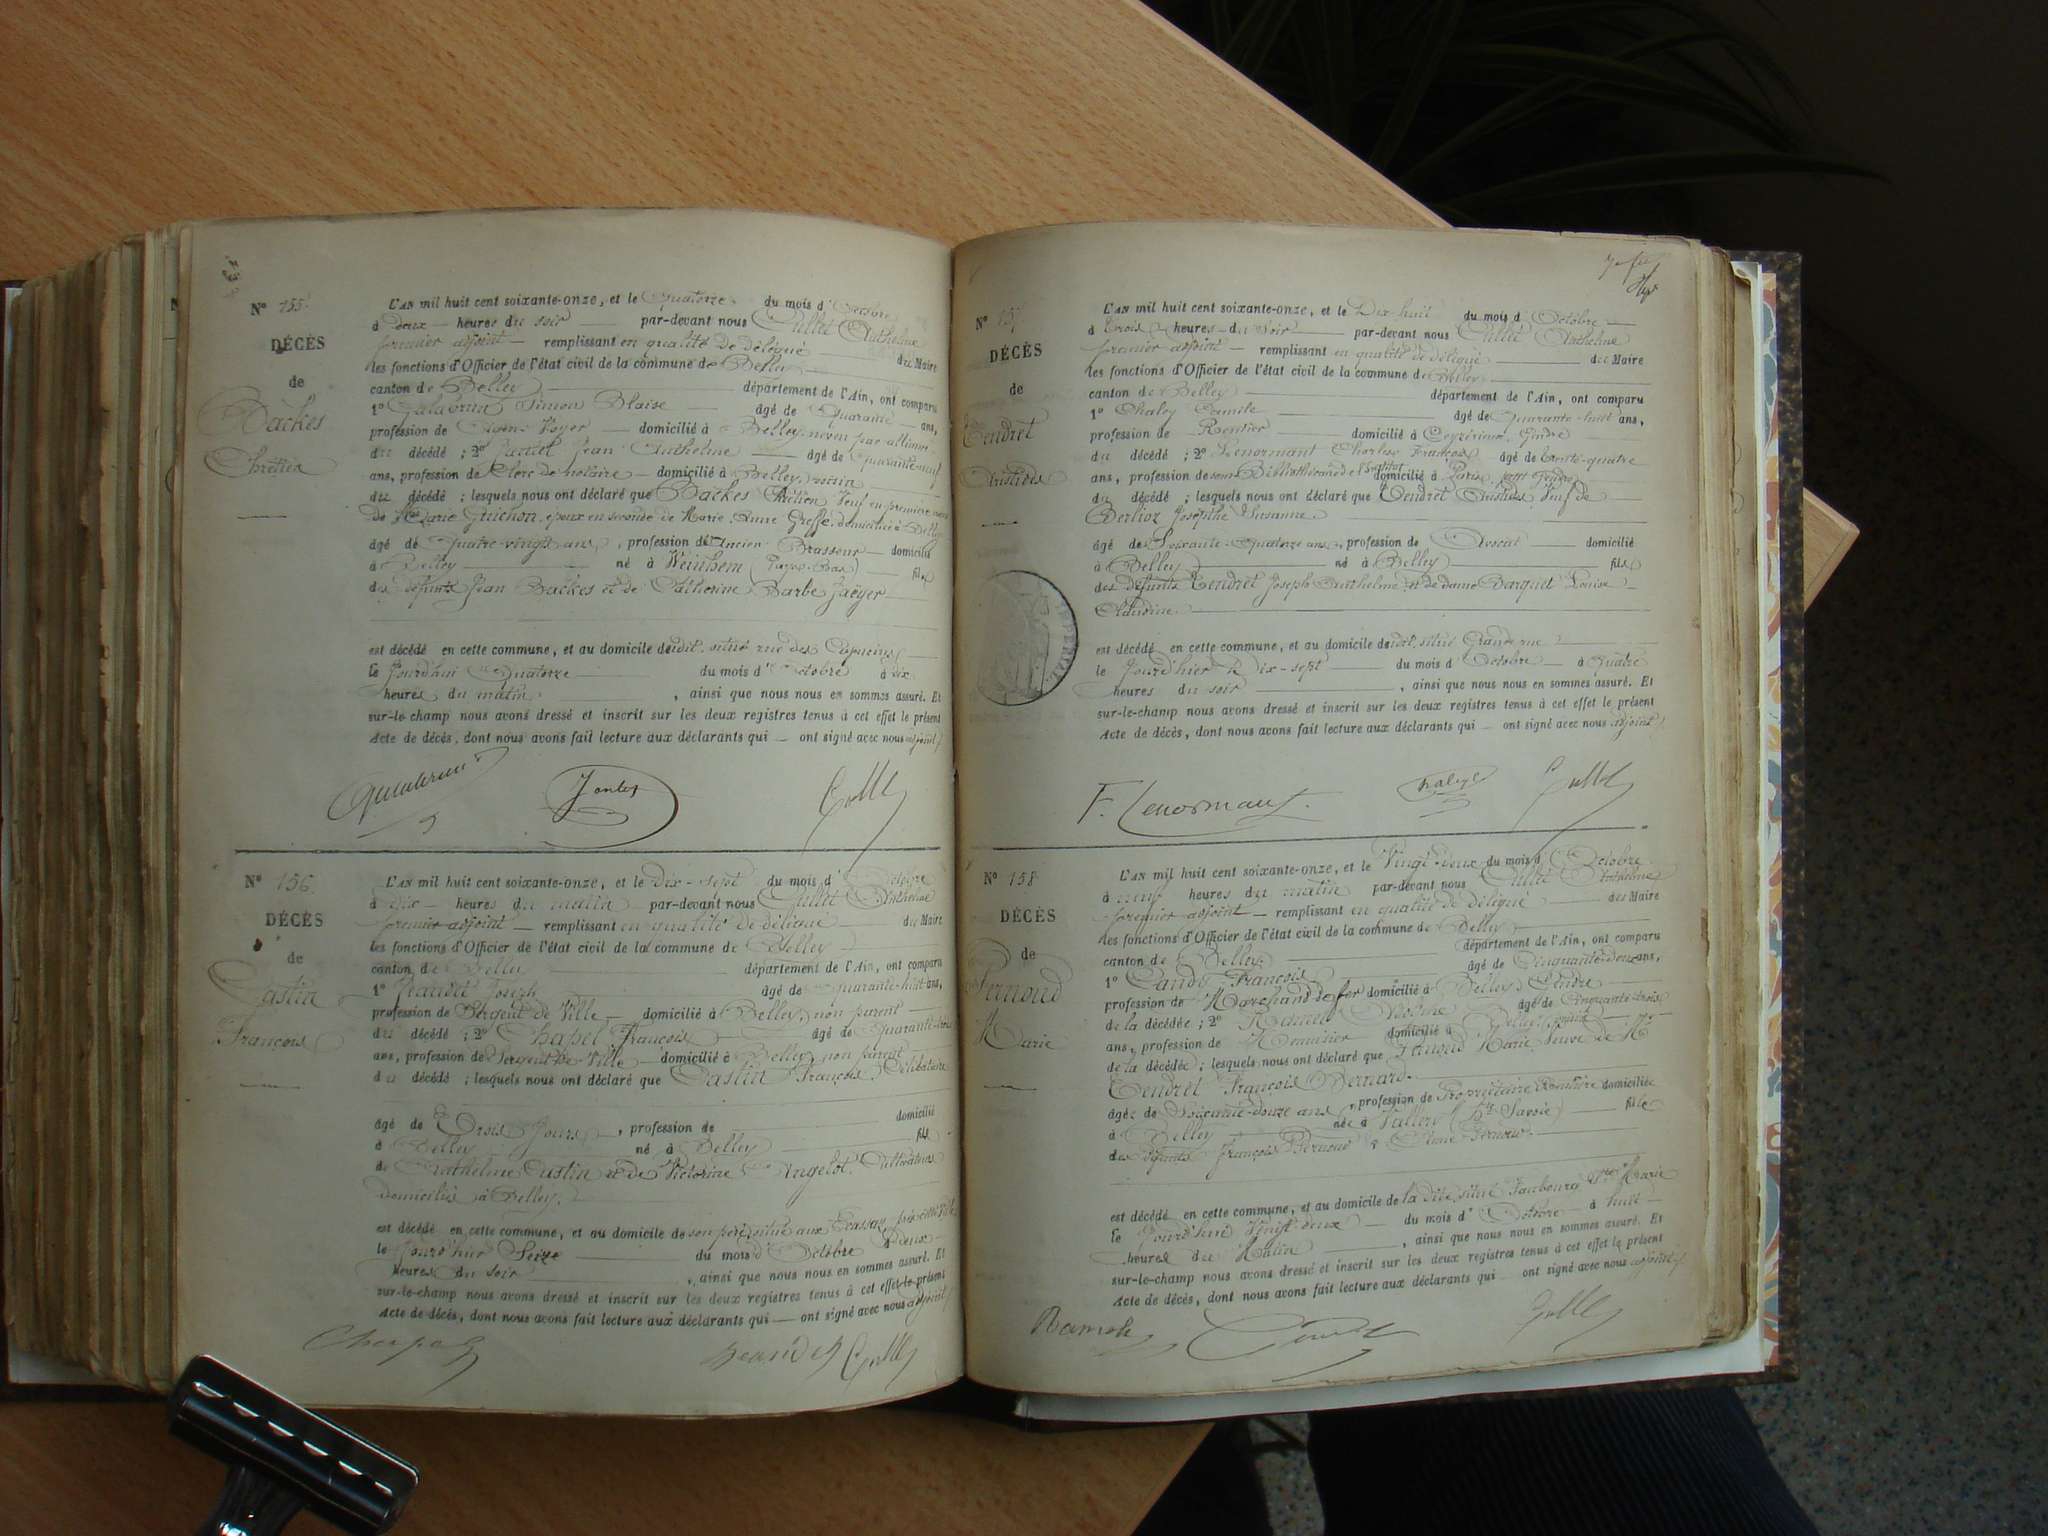 N° 155.
DÉCÈS
de
Backes
Chrétien
L'AN mil huit cent soixante-onze, et le Quatorze du mois d'Octobre
à deux heures du soir par-devant nous Cullet Anthelme
premier adjoint remplissant en qualité de délégué du Maire
les fonctions d'Officier de l'état civil de la commune de Belley
canton de Belley département de l'Ain, ont comparu
1° Galabrun Simon Blaise âgé de Quarante ans,
profession de Agent Voyer domicilié à Belley, neveu par alliance
du décédé ; 2° Jean Anthelme âgé de Quarante-neuf
ans, profession de Clerc de notaire domicilié à Belley, voisin
du décédé ; lesquels nous ont déclaré que Backes Chrétien Veuf en première
de Marie Guichon, époux en seconde de Marie Anne Greffe, domicilié à Belley
âgé de Quatre-vingts ans, profession d'Ancien Brasseur domicilié
à Belley né à Weinhem (Pays-Bas) fils
des défunts Jean Backes et de Catherine Barbe Jaëger
est décédé en cette commune, et au domicile dudit, situé rue des Capucins
le Jourd'hui Quatorze du mois d'Octobre à dix
heures du matin, ainsi que nous nous en sommes assuré. Et
sur-le-champ nous avons dressé et inscrit sur les deux registres tenus à cet effet le présent
Acte de décès, dont nous avons fait lecture aux déclarants qui ont signé avec nous adjoint.
Galabrun Cullet
N° 156.
DÉCÈS
de
Castin
François
L'AN mil huit cent soixante-onze, et le Dix-sept du mois d'Octobre
à dix heures du matin par-devant nous Cullet Anthelme
premier adjoint remplissant en qualité de délégué du Maire
les fonctions d'Officier de l'état civil de la commune de Belley
canton de Belley département de l'Ain, ont comparu
1° Jeandet Joseph âgé de Quarante-huit ans,
profession de Sergent de Ville domicilié à Belley, non parent
du décédé ; 2° Chapel François âgé de Quarante
ans, profession de Sergent de Ville domicilié à Belley non parent
du décédé ; lesquels nous ont déclaré que Castin François, Célibataire
âgé de Trois Jours, profession de domicilié
à Belley né à Belley fils
de Anthelme Castin et de Victorine Angelot, Cultivateurs
domiciliés à Belley.
est décédé en cette commune, et au domicile de son père, situé aux Ecassaz, près cette Ville
le Jourd'hier Seize du mois d'Octobre à deux
heures du soir, ainsi que nous nous en sommes assuré. Et
sur-le-champ nous avons dressé et inscrit sur les deux registres tenus à cet effet le présent
Acte de décès, dont nous avons fait lecture aux déclarants qui ont signé avec nous adjoint
Jeandet Cullet
N° 157.
DÉCÈS
de
Tendret
Aristides
L'AN mil huit cent soixante-onze, et le Dix-huit du mois d'Octobre
à trois heures du soir par-devant nous Cullet Anthelme
premier adjoint remplissant en qualité de délégué du Maire
les fonctions d'Officier de l'état civil de la commune de Belley
canton de Belley département de l'Ain, ont comparu
1° Chaley Camile âgé de Quarante-huit ans,
profession de Rentier domicilié à Ceyzérieux, Gendre
du décédé ; 2° Lenormant Charles François âgé de trente-quatre
ans, profession de sous Bibliothécaire de l'Institut domicilié à Paris, petit Gendre
du décédé ; lesquels nous ont déclaré que Tendret Aristides Veuf de
Berlioz Josephe Susanne.
âgé de Soixante-Quatorze ans, profession de Avocat domicilié
à Belley né à Belley fils
des défunts Tendret Joseph Anthelme et de dame Barquet Louise
Claudine.
est décédé en cette commune, et au domicile dudit, situé Grande rue
le Jourd'hier le dix-sept du mois d'Octobre à Quatre
heures du soir, ainsi que nous nous en sommes assuré. Et
sur-le-champ nous avons dressé et inscrit sur les deux registres tenus à cet effet le présent
Acte de décès, dont nous avons fait lecture aux déclarants qui ont signé avec nous adjoint.
F. Lenormant Chaley Cullet
N° 158
DÉCÈS
de
Pernoud
Marie
L'AN mil huit cent soixante-onze, et le Vingt-deux du mois d'Octobre
à neuf heures du matin par-devant nous Cullet Anthelme
premier adjoint remplissant en qualité de délégué du Maire
les fonctions d'Officier de l'état civil de la commune de Belley
canton de Belley département de l'Ain, ont comparu
1° François âgé de Cinquante-deux ans,
profession de Marchand de fer domicilié à Belley, Gendre
de la décédée ; 2° âgé de Cinquante-trois
ans, profession de domicilié à Belley,
de la décédée ; lesquels nous ont déclaré que Pernoud Marie Veuve de Mr
Tendret François Bernard.
âgée de Soixante-douze ans, profession de Propriétaire Rentière domiciliée
à Belley née à Vallery (Hte Savoie) fille
des défunts François Pernoud &
est décédée en cette commune, et au domicile de la dite, situé Faubourg Ste Marie
le Jourd'hui Vingt-deux du mois d'Octobre à huit
heures du Matin, ainsi que nous nous en sommes assuré. Et
sur-le-champ nous avons dressé et inscrit sur les deux registres tenus à cet effet le présent
Acte de décès, dont nous avons fait lecture aux déclarants qui ont signé avec nous adjoint.
Cullet